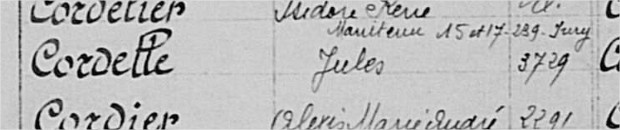 Cordelier Isidore René
Maintenu 15 et 17-239-Jury
Cordelle Jules 3729
Cordier Alexis Marie André 2291